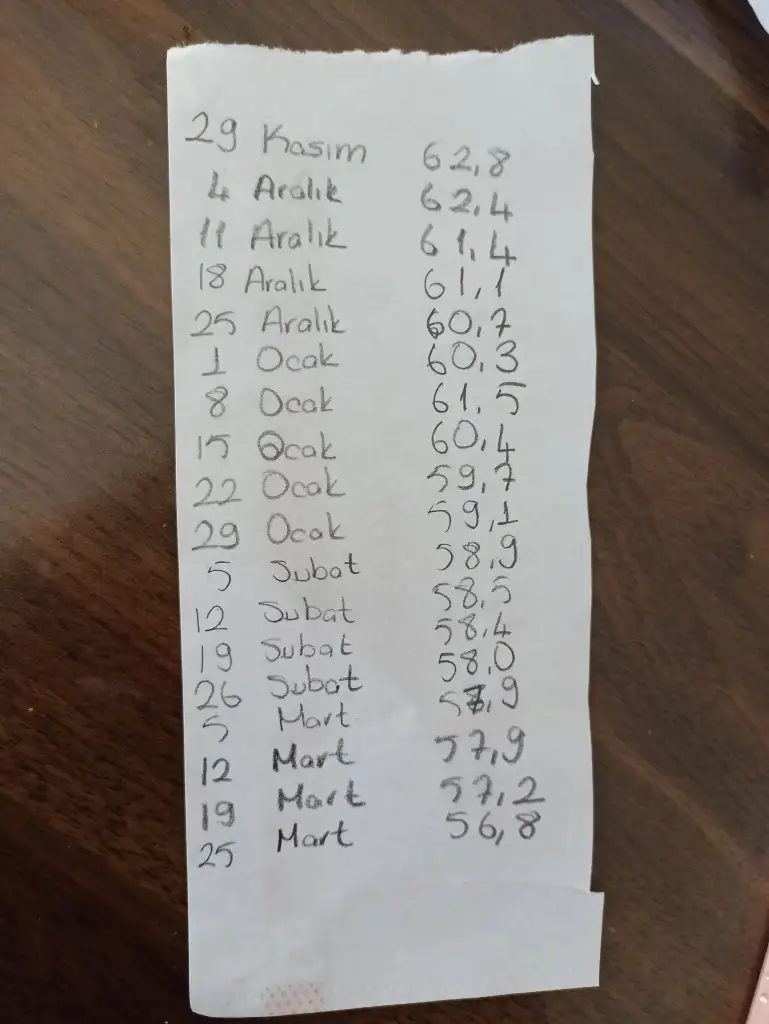 29 Kasım 62,8
4 Aralık 62,4
11 Aralık 61,4
18 Aralık 61,1
25 Aralık 60,7
1 Ocak 60,3
8 Ocak 61,5
15 Ocak 60,4
22 Ocak 59,7
29 Ocak 59,1
5 Subat 58,9
12 Subat 58,5
19 Subat 58,4
26 Subat 58,0
5 Mart 57,9
12 Mart 57,9
19 Mart 57,2
25 Mart 56,8